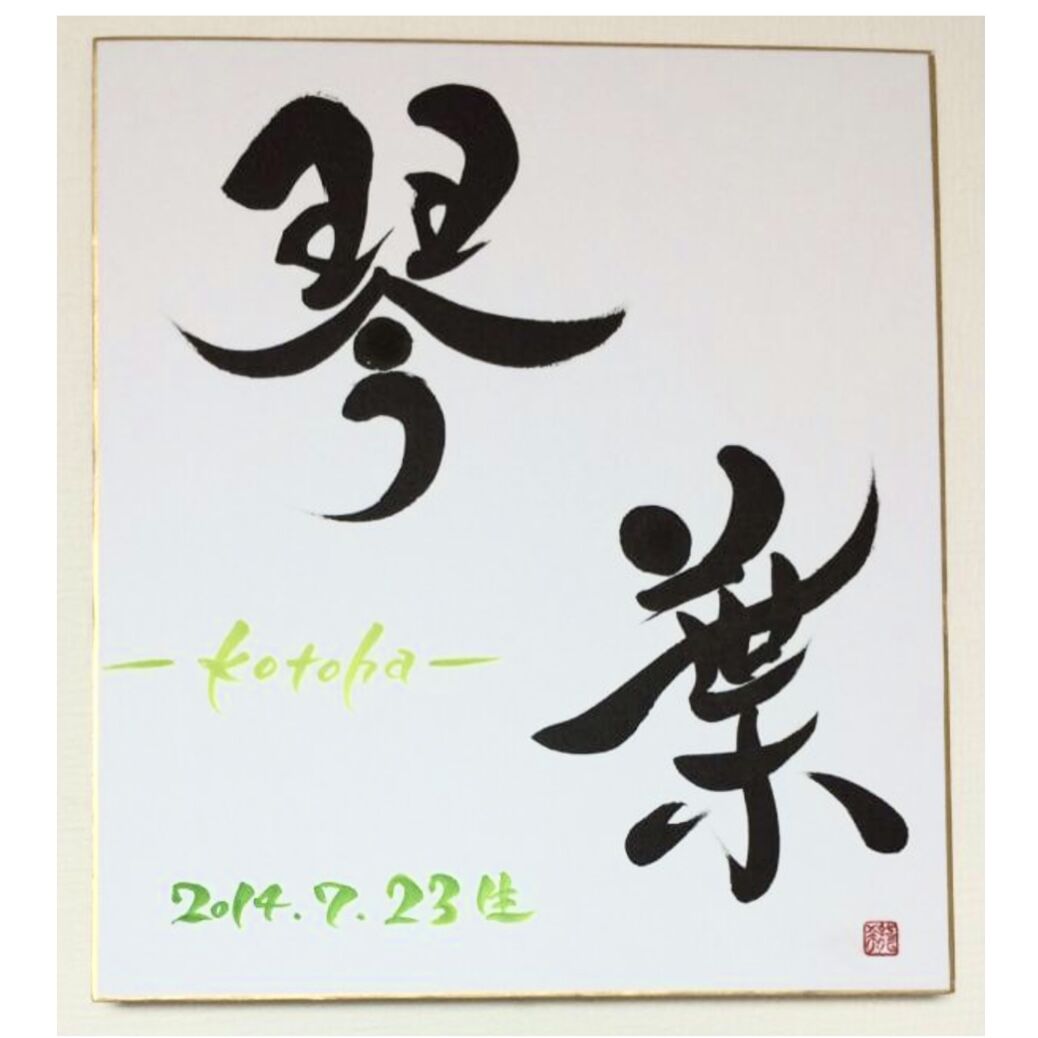 琴葉
—kotoha—
2014.7.23生